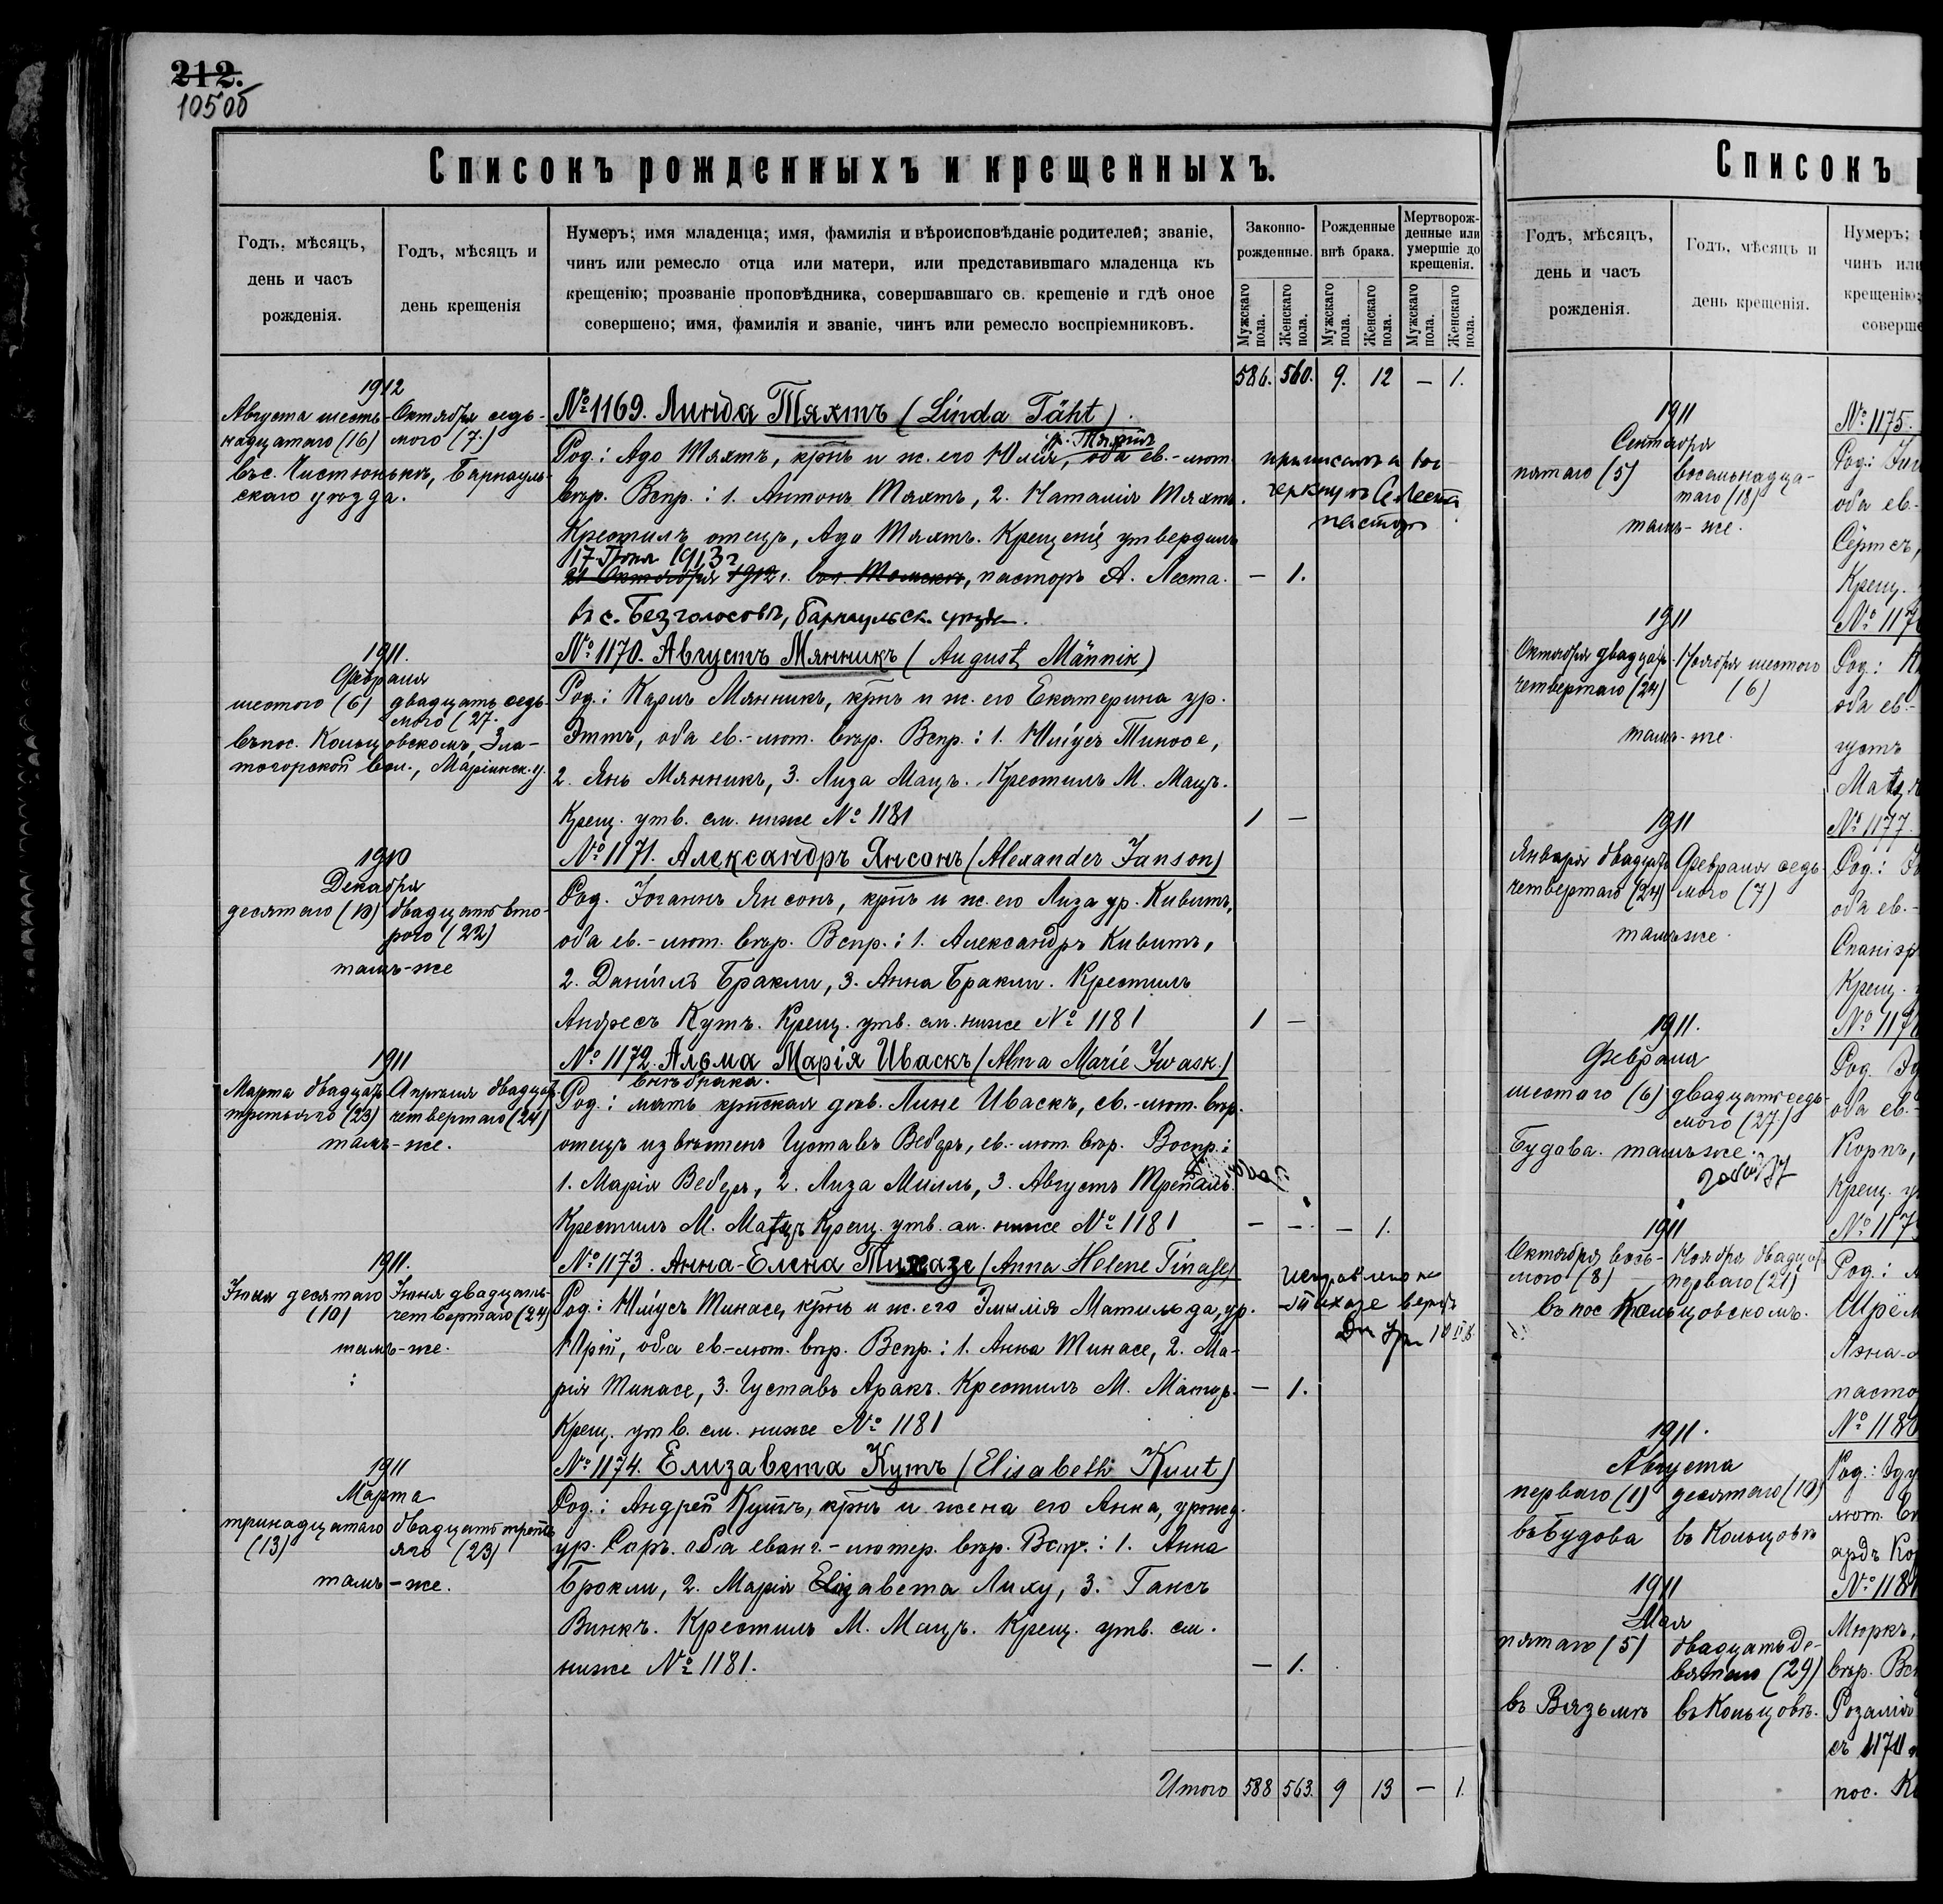 212.
105 об
Списокъ рожденныхъ и крещенныхъ.
Годъ, мѣсяцъ,
день и часъ
рожденія.
Годъ, мѣсяцъ и
день крещенія
Нумеръ; имя младенца; имя, фамилія и вѣроисповѣданіе родителей; званіе,
чинъ или ремесло отца или матери, или представившаго младенца къ
крещенію; прозваніе проповѣдника, совершавшаго св. крещеніе и гдѣ оное
совершено; имя, фамилія и званіе, чинъ или ремесло воспріемниковъ.
Законно-
рожденные.
Рожденные
внѣ брака.
Мертворож-
денные или
умершіе до
крещенія.
Мужскаго пола.
Женскаго пола.
Мужскаго пола.
Женскаго пола.
Мужскаго пола.
Женскаго пола.
586. 560. 9. 12 — 1.
1912
Августа шест-
надцатаго (16)
Октября седь-
мого (7.)
въ с. Чистюнькѣ, Барнауль-
скаго уѣзда.
№ 1169. Линда Тяхтъ (Linda Täht).
Род.: Адо Тяхтъ, крнъ и ж. его Юлія, оба ев.-лют.
вѣр. Вспр.: 1. Антонъ Тяхтъ, 2. Наталія Тяхтъ.
Крестилъ отецъ, Адо Тяхтъ. Крещеніе утвердилъ
17 Іюня 1913 г
21 Октября 1912 г. въ г. Томскѣ, пасторъ А. Леста. — 1.
въ с. Безголосовѣ, Барнаульск. уѣзда.
пасторъ
1911.
Февраля
шестого (6)
двадцать седь-
мого (27.
въ пос. Кольцовскомъ, Зла-
тогорской вол., Маріинск. у.
№ 1170. Августъ Мянникъ (August Männik)
Род.: Карлъ Мянникъ, крнъ и ж. его Екатерина ур.
Эттъ, оба ев.-лют. вѣр. Вспр.: 1. Юліусъ Тинасе,
2. Янъ Мянникъ, 3. Лиза Мацъ. Крестилъ М. Мацъ.
Крещ. утв. см. ниже № 1181 1 —
1910
Декабря
десятаго (10)
двадцать вто-
рого (22)
тамъ-же
№ 1171. Александръ Янсонъ (Alexander Janson)
Род. Іоганнъ Янсонъ, крнъ и ж. его Лиза ур. Кивитъ,
оба ев.-лют. вѣр. Вспр.: 1. Александръ Кивитъ,
2. Даніилъ Бракли, 3. Анна Бракли. Крестилъ
Андресъ Кутъ. Крещ. утв. см. ниже № 1181 1 —
1911
Марта двадцать
третьяго (23)
Апрѣля двадцать
четвертаго (24)
тамъ-же.
№ 1172. Альма Марія Иваскъ (Alma Marie Iwask)
внѣ брака.
Род.: мать крпская дѣв. Лине Иваскъ, ев.-лют. вѣр.
отецъ извѣстенъ Густавъ Веберъ, ев.-лют. вѣр. Воспр.:
1. Марія Веберъ, 2. Лиза Милль, 3. Августъ Трепаль.
Крестилъ М. Матцъ Крещ. утв. см. ниже № 1181 — — — 1.
1911.
Іюня десятаго
(10)
Іюня двадцать
четвертаго (24)
тамъ-же.
№ 1173. Анна-Елена Тихазе (Anna Helene Tinase)
Род.: Юліусъ Тинасе, крнъ и ж. его Эмилія Матильда, ур.
Юрій, оба ев.-лют. вѣр. Вспр.: 1. Анна Тинасе, 2. Ма-
рія Тинасе, 3. Густавъ Аракъ. Крестилъ М. Матцъ. — 1.
Крещ. утв. см. ниже № 1181
Исправлено на
Тихазе
1911
Марта
тринадцатаго
(13)
двадцать треть-
яго (23)
тамъ-же.
№ 1174. Елизавета Кутъ (Elisabeth Kuut)
Род.: Андрей Кутъ, крнъ и жена его Анна, урожд.
ур. Саръ. оба еванг.-лютер. вѣр. Вспр.: 1. Анна
Брокли, 2. Марія Елизавета Лиху, 3. Гансъ
Винкъ. Крестилъ М. Мацъ. Крещ. утв. см.
ниже № 1181. — 1.
Итого 588 563. 9 13 — 1.
Списокъ
Годъ, мѣсяцъ,
день и часъ
рожденія.
Годъ, мѣсяцъ и
день крещенія.
Нумеръ;
чинъ или
крещенію;
соверше
1911
Сентября
пятаго (5)
восемьнадца-
таго (18)
тамъ-же.
№ 1175.
Род.:
оба ев.-
Крещ.
1911
Октября двадцать
четвертаго (24)
Ноября шестого
(6)
тамъ-же.
№ 117
Род.:
оба ев.-
густъ
1911
Января двадцать
четвертаго (24)
Февраля седь-
мого (7)
тамъ же.
№ 1177.
Род.:
оба ев.-
Крещ.
1911.
Февраля
шестого (6)
двадцать седь-
мого (27)
Будова. тамъ же.
№ 117
Род.
оба ев.-
Корпъ,
Крещ.
1911
Октября вось-
мого (8)
Ноября двадцать
перваго (21)
въ пос Кольцовскомъ.
№ 117
Род.:
пасто
1911.
Августа
перваго (1)
десятаго (10)
въ Будова
въ Кольцовѣ
№ 1180
Род.:
лют.
1911
Мая
пятаго (5)
двадцать де-
вятаго (29)
въ Вязьмѣ
въ Кольцовѣ.
№ 1181
Мюркъ,
вѣр. Всп
Розалія
съ 1170
пос. К